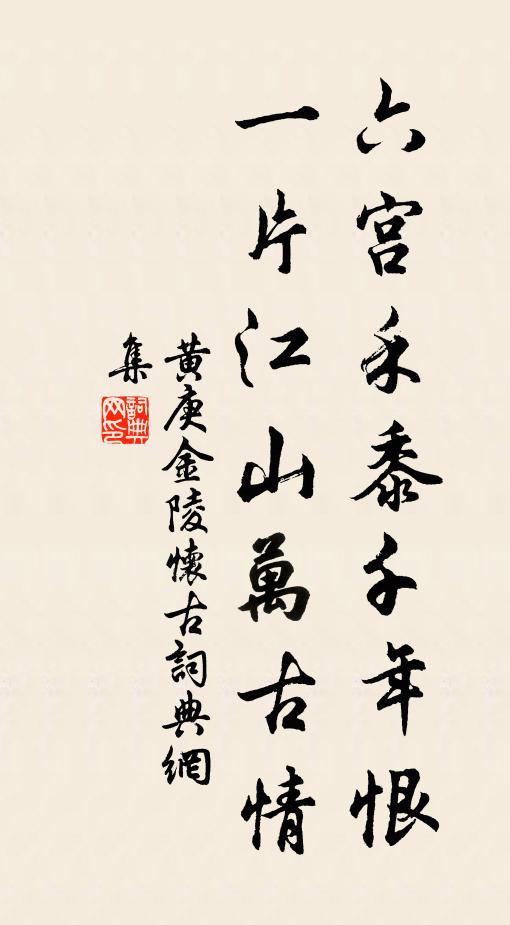 六宮禾黍千年恨
一片江山萬古情
黃庚金陵懷古詞典網
集
詞典
网印